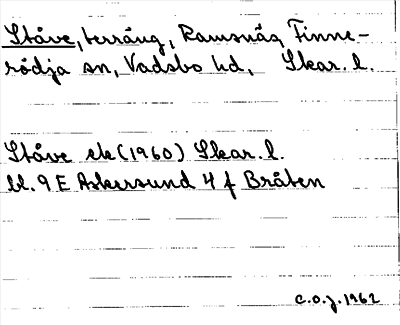 Ståve, terräng, Ramsnäs, Finne-
rödja sn, Vadsbo hd, Skar. l.
Ståve ek (1960) Skar. l.
bl. 9 E Askersund 4 f Bråten
C.O.J. 1962